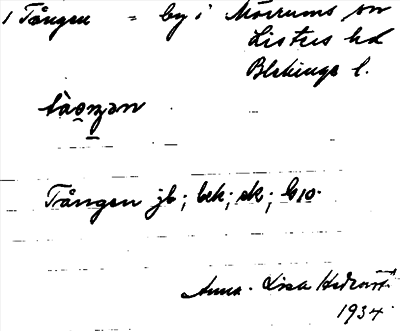 1 Tången = by i Mörrums sn
Listers hd
Blekinge l.
Tången jb; bek; sk; G10.
Anna-Lisa
1934